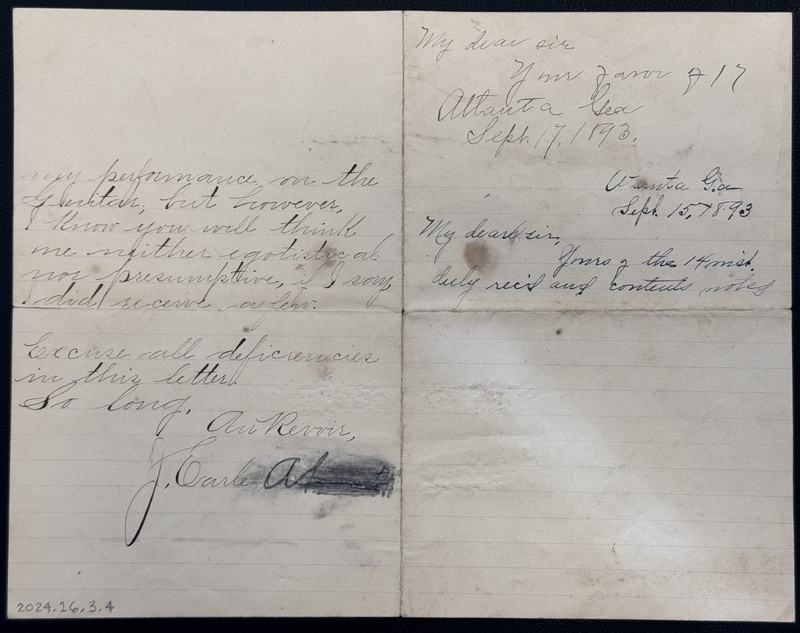 my performance on the
Guitar, but however,
I know you will think
me neither egotistical
nor presumptive, if I say,
I did receive a few.
Excuse all deficiencies
in this letter.
So long.
Au Revoir,
J. Carle
2024.16.3.4
My dear sir
Your favor of 17
Atlanta Gea
Sept. 17, 1893.
Atlanta Ga
Sept. 15, 1893
My dear sir,
Yours of the 14 inst.
duly rec'd and contents noted